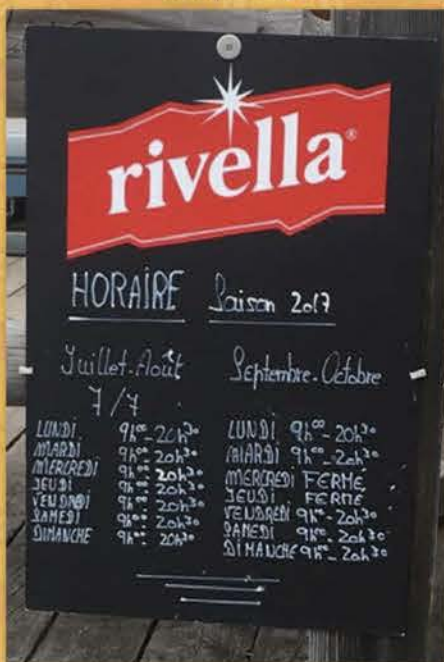 rivella®
HORAIRE Saison 2017
Juillet-Août
7/7
LUNDI 9h00-20h30
MARDI 9h00-20h30
MERCREDI 9h00-20h30
JEUDI 9h00-20h30
VENDREDI 9h00-20h30
SAMEDI 9h00-20h30
DIMANCHE 9h00-20h30
Septembre-Octobre
LUNDI 9h00-20h30
MARDI 9h00-20h30
MERCREDI FERMÉ
JEUDI FERMÉ
VENDREDI 9h00-20h30
SAMEDI 9h00-20h30
DIMANCHE 9h00-20h30